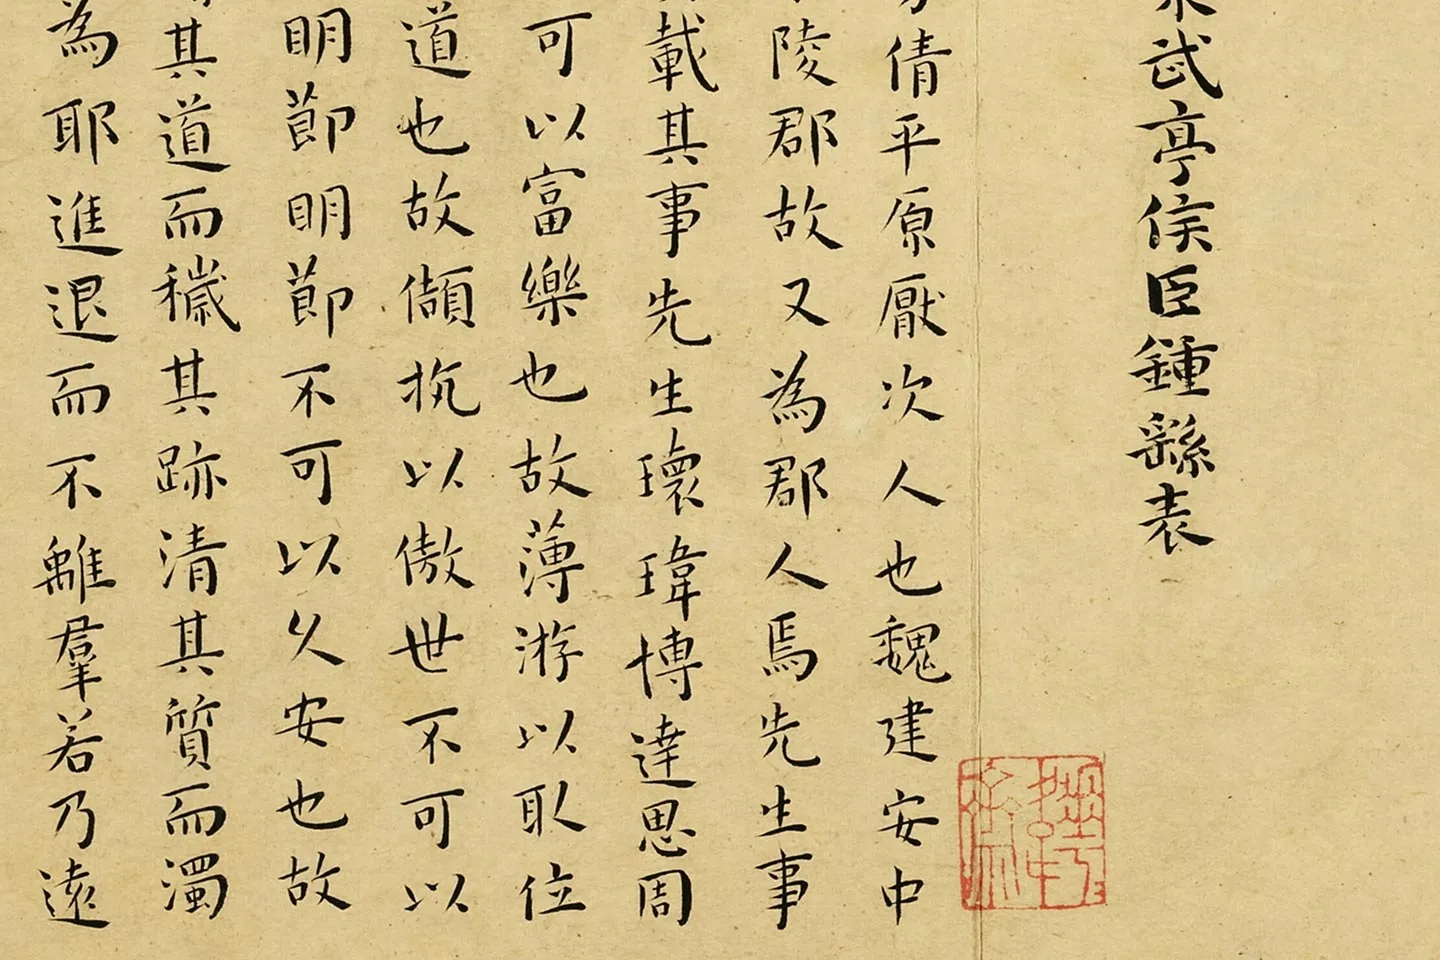 武亭侯臣鍾繇表
倩平原厭次人也魏建安中
陵郡故又為郡人焉先生事
載其事先生瓌瑋博達思周
可以富樂也故薄游以取位
道也故抗以傲世不可以
明節明節不可以久安也故
其道而穢其跡清其質而濁
為耶進退而不離羣若乃遠